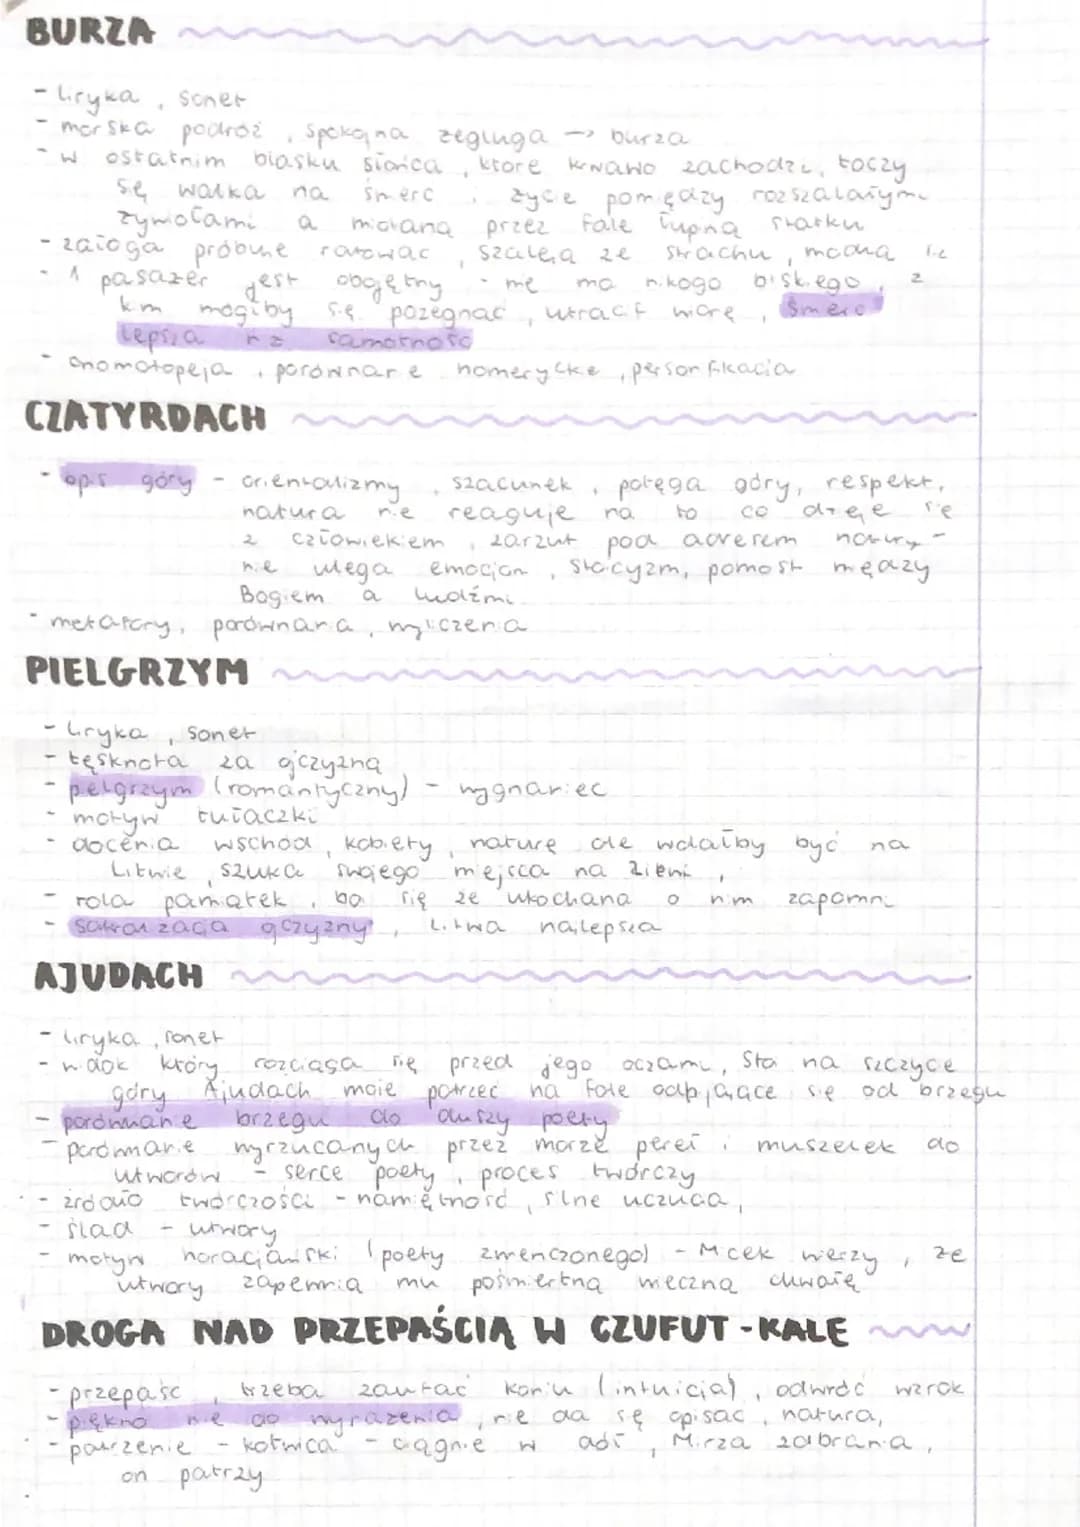 BURZA
- liryka, sonet
- morska podróż, spokojna żegluga → burza
- w ostatnim blasku słońca, które krwawo zachodzi, toczy
się walka na śmierć i życie pomiędzy rozszalałymi
żywiołami a miotaną przez fale łupiną statku
- załoga próbuje ratować, szaleją ze strachu, modlą się
- 1 pasażer jest obojętny - nie ma nikogo bliskiego, z
kim mógłby się pożegnać, utracił wiarę, śmierć
lepsza niż samotność
- onomatopeja, porównanie homeryckie, personifikacja
CZATYRDACH
- opis góry - orientalizmy, szacunek, potęga góry, respekt,
natura nie reaguje na to co dzieje się
z człowiekiem, zarzut pod adresem natury -
nie ulega emocjom, stoicyzm, pomost między
Bogiem a ludźmi
- metafory, porównania, wyliczenia
PIELGRZYM
- liryka, sonet
- tęsknota za ojczyzną
- pielgrzym (romantyczny) - wygnaniec
- motyw tułaczki
- docenia wschód, kobiety, naturę ale wolałby być na
Litwie, szuka swojego miejsca na ziemi,
- rola pamiątek, boi się że ukochana o nim zapomni
- sakralizacja ojczyzny, Litwa najlepsza
AJUDACH
- liryka, sonet
- widok który rozciąga się przed jego oczami, stoi na szczycie
góry Ajudach może patrzeć na fale odbijające się od brzegu
- porównanie brzegu do duszy poety
- porównanie wyrzucanych przez morze pereł i muszelek do
utworów - serce poety, proces twórczy
- źródło twórczości - namiętność, silne uczucia,
- ślad - utwory
- motyw horacjański (poety zwieńczonego) - Mickiewicz wierzy, że
utwory zapewnią mu pośmiertną wieczną chwałę
DROGA NAD PRZEPAŚCIĄ W CZUFUT-KALE
- przepaść, trzeba zaufać koniu (intuicja), odwróć wzrok
- piękno nie do wyrażenia, nie da się opisać, natura,
- patrzenie - kotwica - ciągnie w dół, Mirza zabrania,
on patrzy